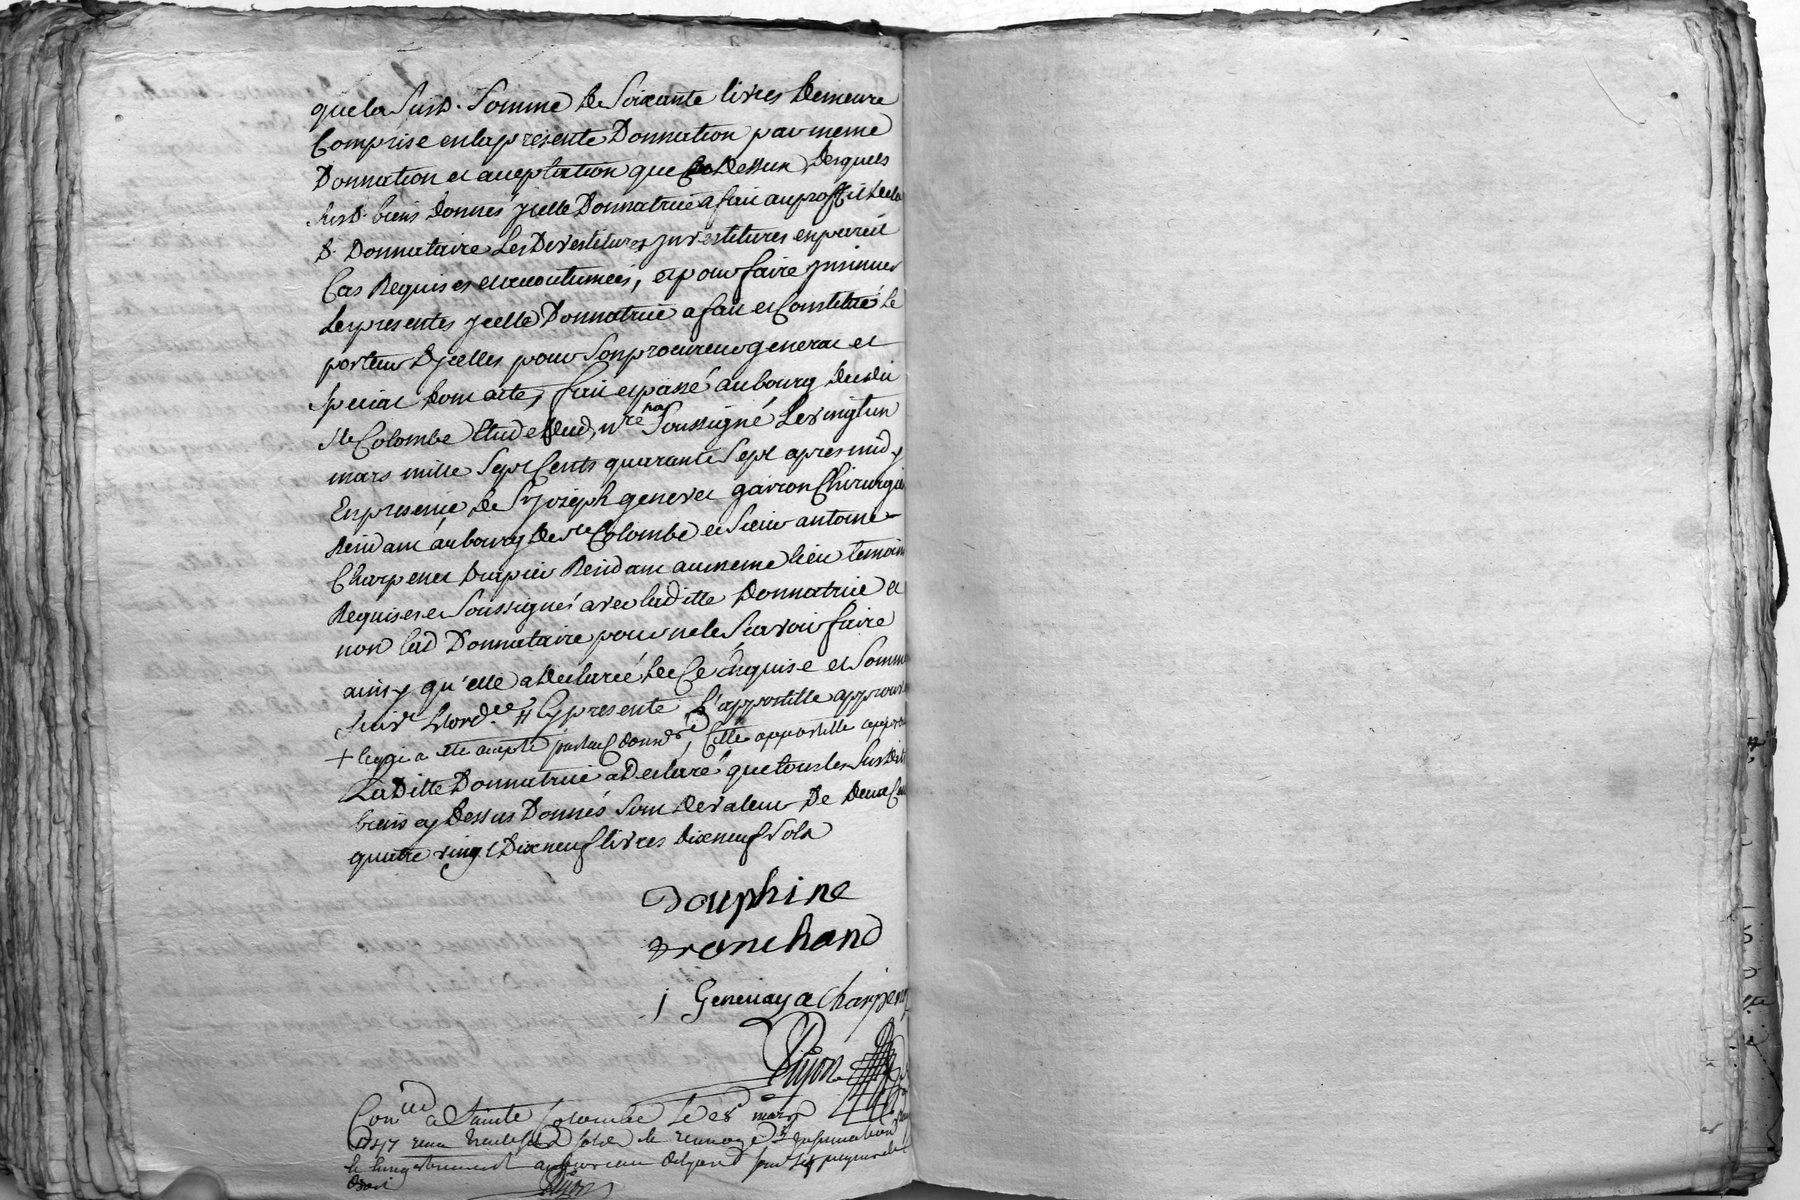 que la Susd. Somme de Soixante livres demeure
Comprise en la presente Donnation par meme
Donnation et acceptation que Cy Dessus, desquels
susd. biens donnés ycelle Donnatrice a fait au proffit de la
d. Donnataire Les Devestitures Investitures en pareil
Cas Requises et accoutumées, et pour faire jnsinuer
les presentes ycelle Donnatrice a fait et Constitué le
porteur D'jcelles pour Son procureur general et
special dont acte, fait et passé au bourg dudit
Ste Colombe Etude dud, nre no.re Soussigné Le vingt un
mars mille Sept Cents quarante Sept apres midy
En presence de Sr joseph genevet garçon Chirurgien
Residant au bourg de ste Colombe et Sieur antoine
Charpenet Drapier Residant au meme lieu temoins
Requis et Soussignés avec laditte Donnatrice et
non lad Donnataire pour ne le Scavoir faire
ainsy qu'elle a declaré de Ce Enquise et Sommée
Suivt Lordce # Cy presente L'appostille approuvée
+ ce qui a été accepté par lad donnre, Cette appostille approuvée
La Ditte Donnatrice a Declaré que tous les Susdits
biens cy Dessus Donnés Sont de valeur De Deux Cent
quatre vingt Dix neuf livres dix neuf sols
Dauphine
tronchand
j Genevay a Charpenet
Dujon
Conllé a Sainte Colombe le 28 mars
1747 recu sols le renvoyé insinuation
le au bureau
droit
Dujon